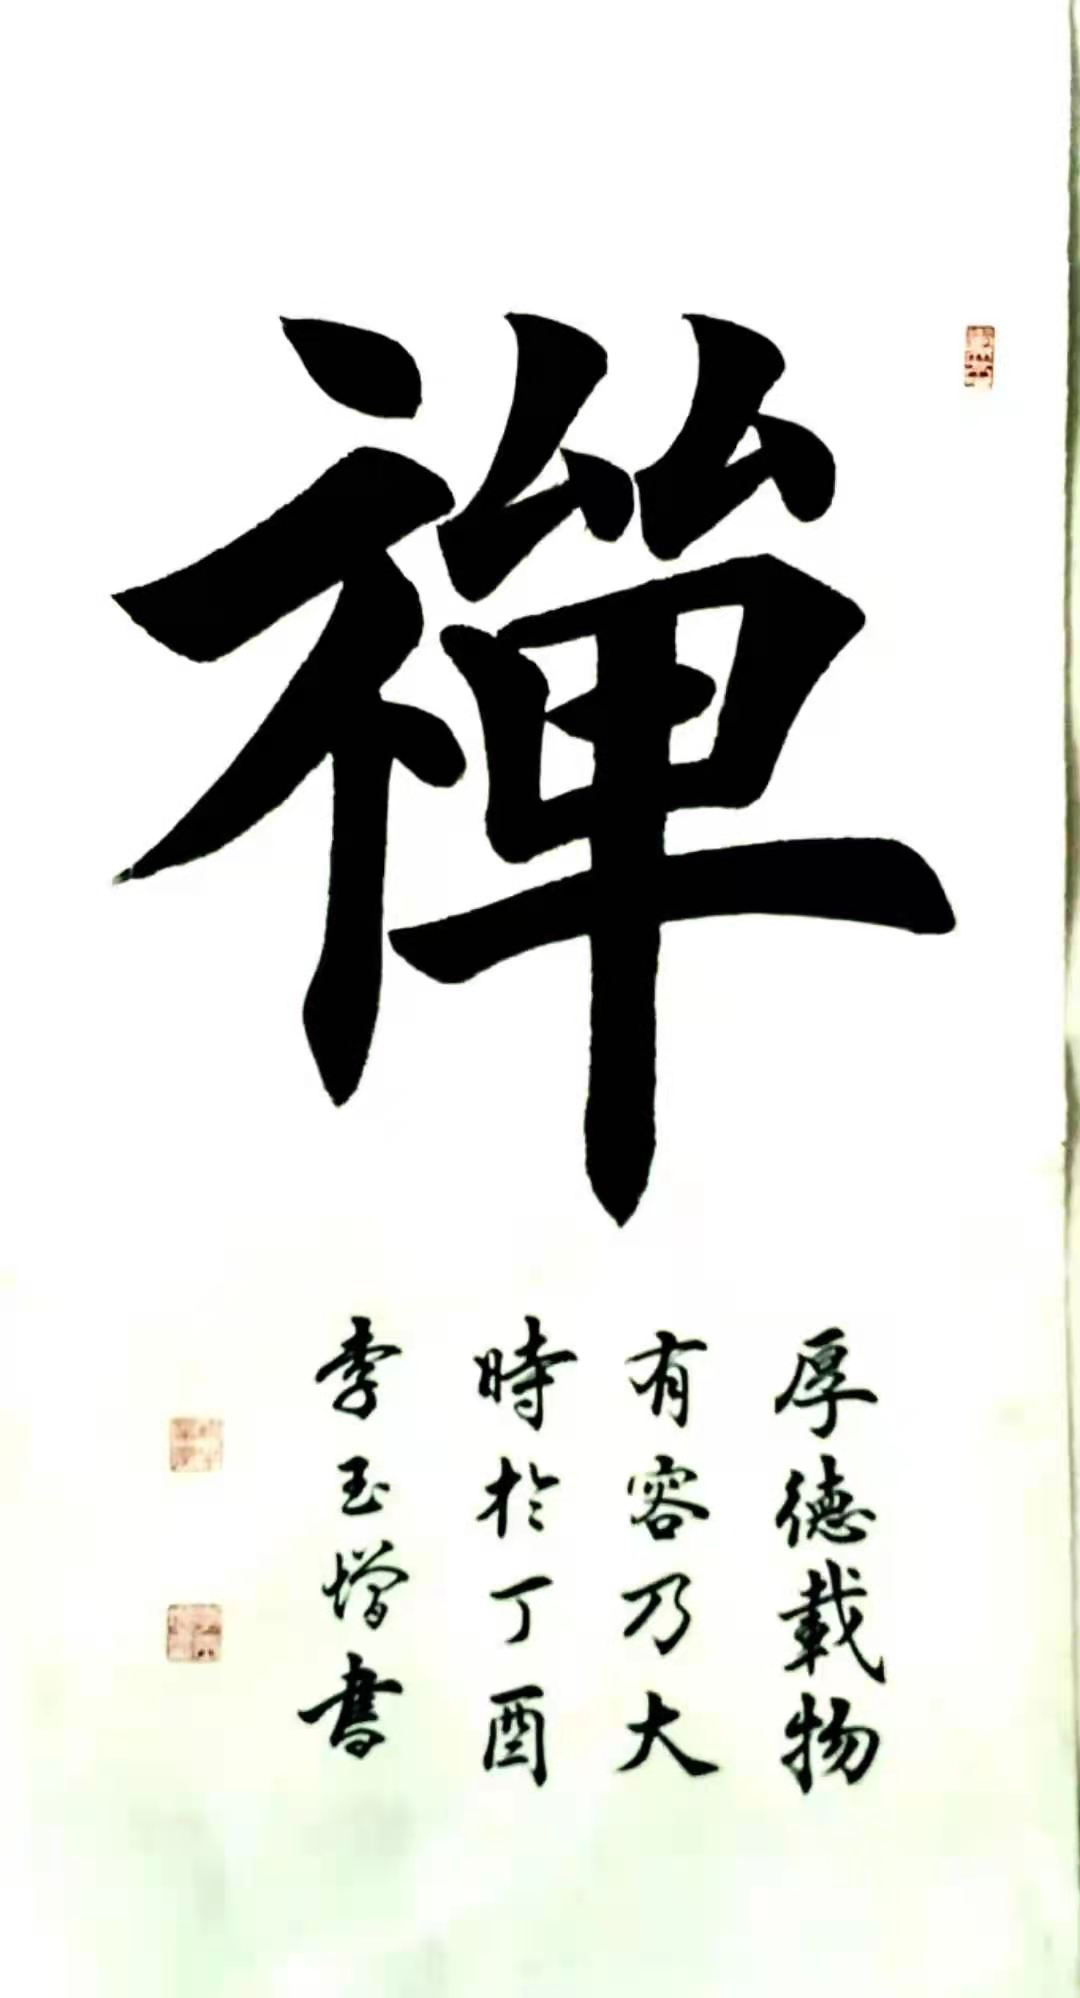 禪
厚德載物
有容乃大
時於丁酉
李玉增書